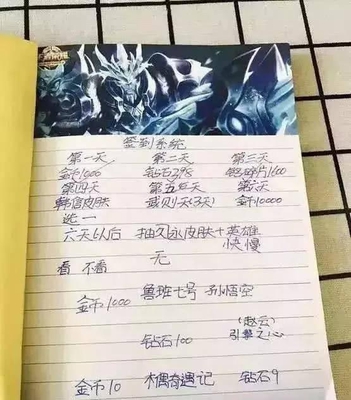 王者荣耀
签到系统
第一天 第二天 第三天
金币1000 钻石398 1600
第四天 第五天 第六天
韩信皮肤 武则天(3天) 金币10000
选一
六天以后 抽久永皮肤+英雄
快慢
看 不看 无
金币1000 鲁班七号 孙悟空
(赵云)
钻石100 引擎之心
金币10 木偶奇遇记 钻石9